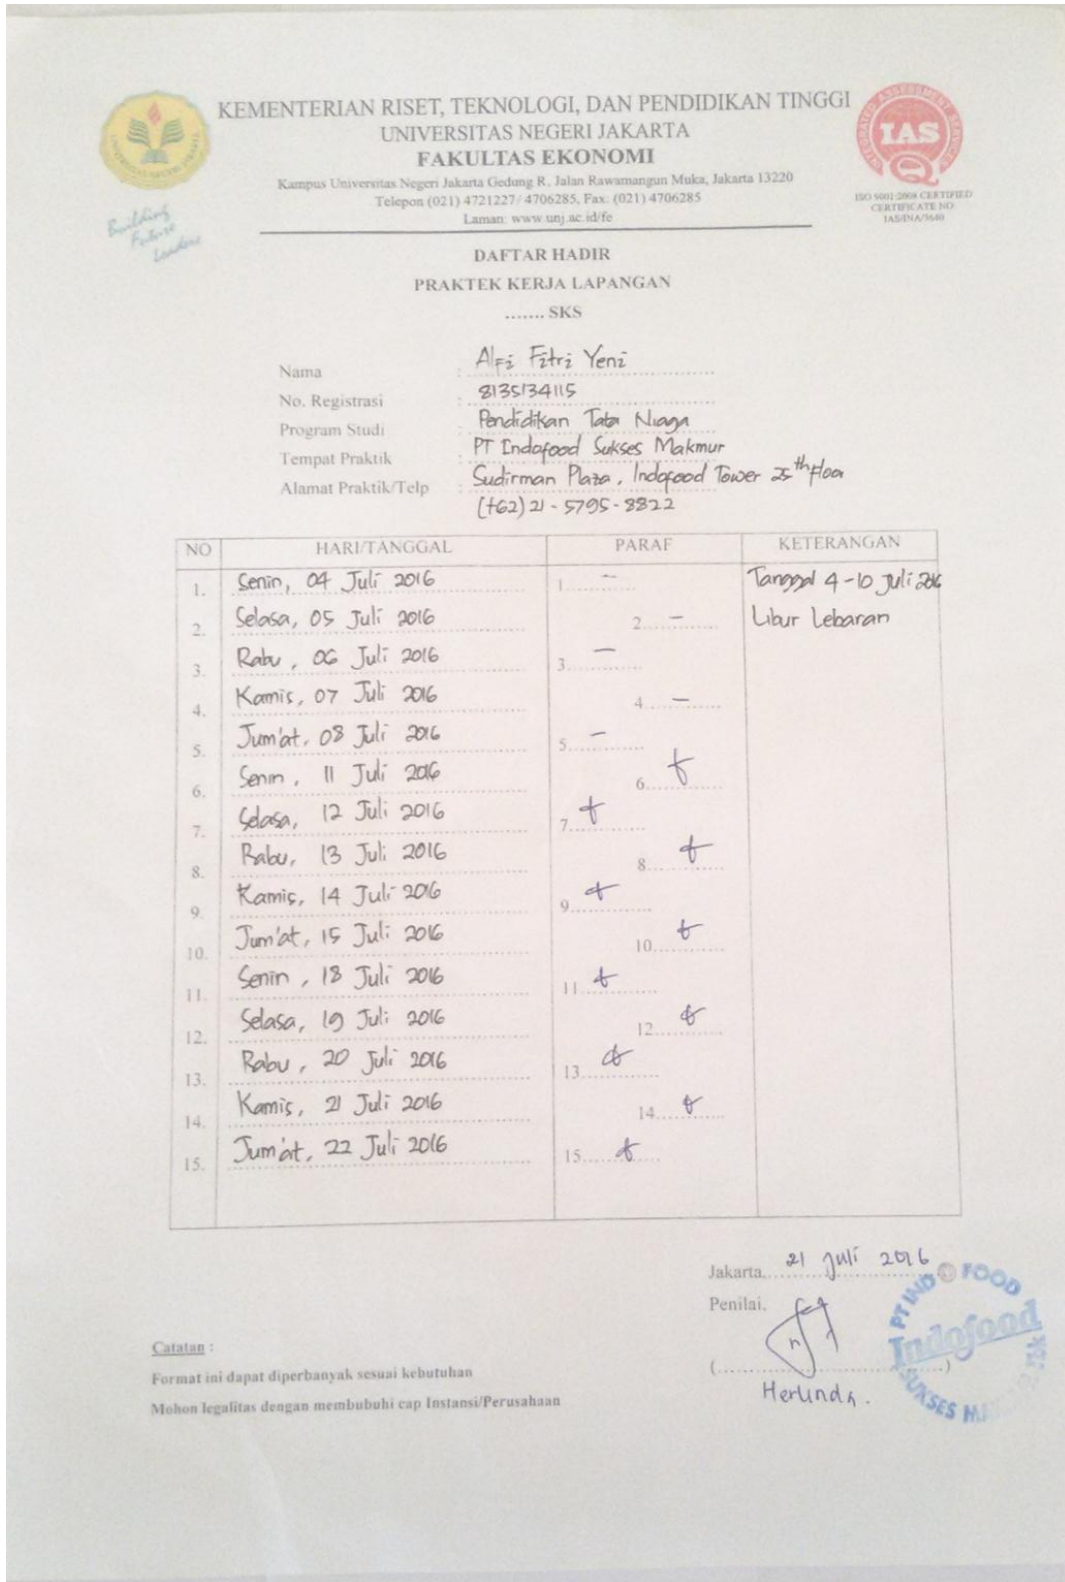 KEMENTERIAN RISET, TEKNOLOGI, DAN PENDIDIKAN TINGGI
UNIVERSITAS NEGERI JAKARTA
FAKULTAS EKONOMI
Kampus Universitas Negeri Jakarta Gedung R, Jalan Rawamangun Muka, Jakarta 13220
Telepon (021) 4721227/ 4706285, Fax: (021) 4706285
Laman: www.unj.ac.id/fe
Building
Future
Leaders
INTEGRATED ASSESSMENT SERVICES
IAS
ISO 9001:2008 CERTIFIED
CERTIFICATE NO.
DAFTAR HADIR
PRAKTEK KERJA LAPANGAN
....... SKS
Nama : Alfi Fitri Yeni
No. Registrasi : 8135134115
Program Studi : Pendidikan Tata Niaga
Tempat Praktik : PT Indofood Sukses Makmur
Alamat Praktik/Telp : Sudirman Plaza, Indofood Tower 25th floor
(+62) 21 - 5795 - 8822
NO HARI/TANGGAL PARAF KETERANGAN
1. Senin, 04 Juli 2016 1. - Tanggal 4 - 10 Juli 2016
2. Selasa, 05 Juli 2016 2. - Libur Lebaran
3. Rabu, 06 Juli 2016 3. -
4. Kamis, 07 Juli 2016 4. -
5. Jum'at, 08 Juli 2016 5. -
6. Senin, 11 Juli 2016 6.
7. Selasa, 12 Juli 2016 7.
8. Rabu, 13 Juli 2016 8.
9. Kamis, 14 Juli 2016 9.
10. Jum'at, 15 Juli 2016 10.
11. Senin, 18 Juli 2016 11.
12. Selasa, 19 Juli 2016 12.
13. Rabu, 20 Juli 2016 13.
14. Kamis, 21 Juli 2016 14.
15. Jum'at, 22 Juli 2016 15.
Jakarta, 21 Juli 2016
Penilai,
(........................)
Herlinda.
PT INDOFOOD
Indofood
SUKSES
Catatan :
Format ini dapat diperbanyak sesuai kebutuhan
Mohon legalitas dengan membubuhi cap Instansi/Perusahaan